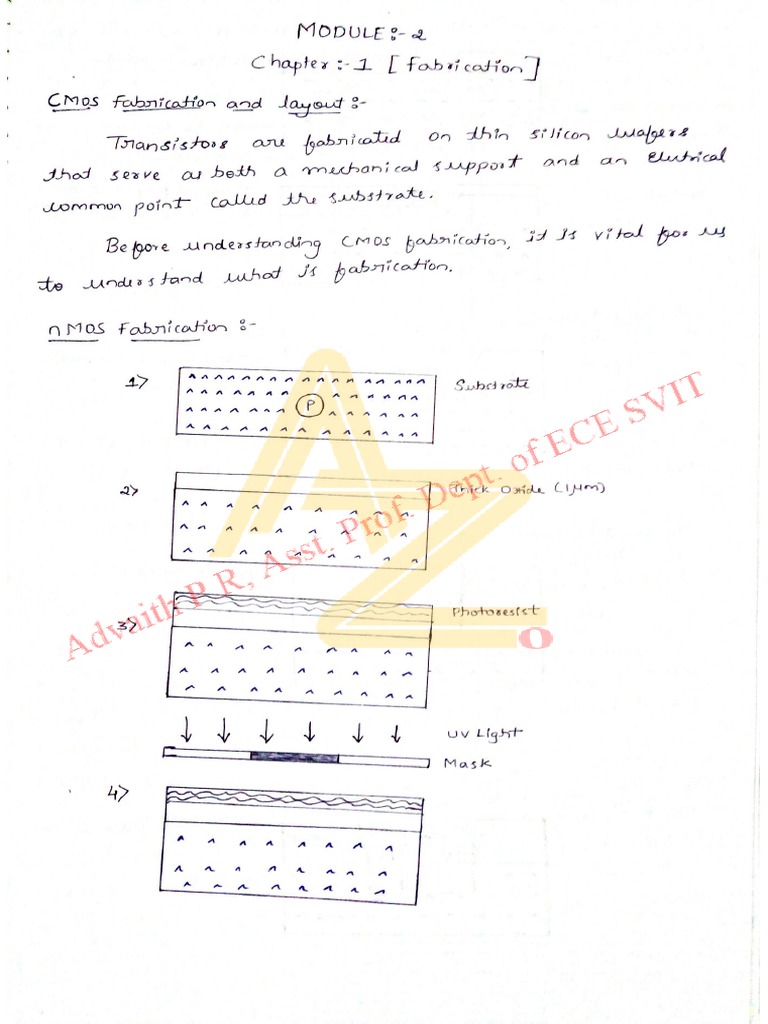 MODULE:- 2
Chapter :- 1 [fabrication]
CMOS Fabrication and layout :-
Transistors are fabricated on thin silicon wafers
that serve as both a mechanical support and an Eletrical
common point called the substrate.
Before understanding CMOS fabrication, it is vital for us
to understand what is fabrication.
nMOS Fabrication :-
1>
P
Substrate
2>
Thick Oxide (1μm)
3>
Photoresist
UV Light
Mask
4>
Advaith P R, Asst. Prof. Dept. of ECE SVIT
AZO